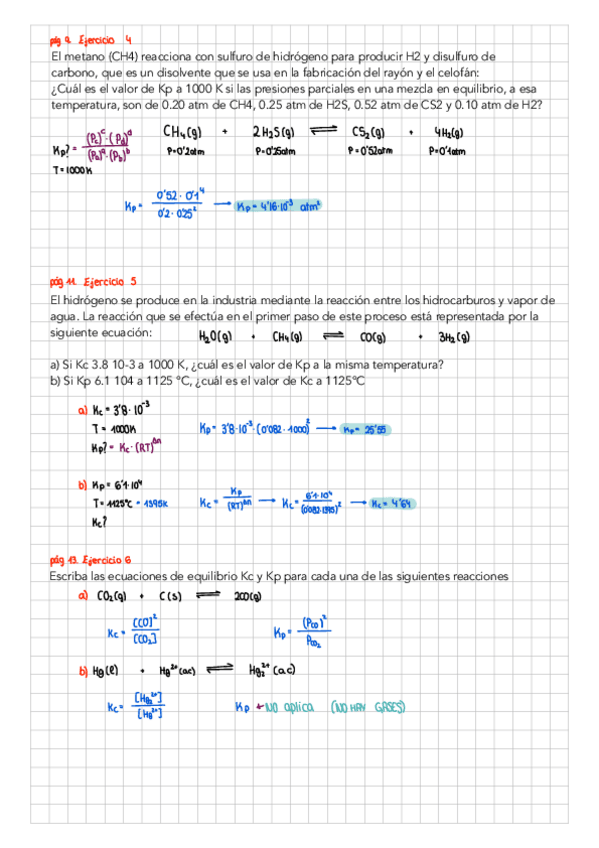 pág 9. Ejercicio 4
El metano (CH4) reacciona con sulfuro de hidrógeno para producir H2 y disulfuro de
carbono, que es un disolvente que se usa en la fabricación del rayón y el celofán:
¿Cuál es el valor de Kp a 1000 K si las presiones parciales en una mezcla en equilibrio, a esa
temperatura, son de 0.20 atm de CH4, 0.25 atm de H2S, 0.52 atm de CS2 y 0.10 atm de H2?
Kp? = (Pc)^c · (Pd)^d / (Pa)^a · (Pb)^b
CH4(g) + 2H2S(g) ⇌ CS2(g) + 4H2(g)
P=0'2atm P=0'25atm P=0'52atm P=0'1atm
T=1000K
Kp = 0'52 · 0'1^4 / 0'2 · 0'25^2 → Kp = 4'16·10^-3 atm^2
pág 11. Ejercicio 5
El hidrógeno se produce en la industria mediante la reacción entre los hidrocarburos y vapor de
agua. La reacción que se efectúa en el primer paso de este proceso está representada por la
siguiente ecuación: H2O(g) + CH4(g) ⇌ CO(g) + 3H2(g)
a) Si Kc 3.8 10-3 a 1000 K, ¿cuál es el valor de Kp a la misma temperatura?
b) Si Kp 6.1 104 a 1125 °C, ¿cuál es el valor de Kc a 1125°C
a) Kc = 3'8·10^-3
T = 1000K
Kp = 3'8·10^-3·(0'082·1000)^2 → Kp = 25'55
Kp? = Kc·(RT)^Δn
b) Kp = 6'1·10^4
T = 1125°C = 1395K
Kc = Kp / (RT)^Δn → Kc = 6'1·10^4 / (0'082·1395)^2 → Kc = 4'64
Kc?
pág 13. Ejercicio 6
Escriba las ecuaciones de equilibrio Kc y Kp para cada una de las siguientes reacciones
a) CO2(g) + C(s) ⇌ 2CO(g)
Kc = [CO]^2 / [CO2] Kp = (PCO)^2 / PCO2
b) Hg(l) + Hg^2+(ac) ⇌ Hg2^2+(ac)
Kc = [Hg2^2+] / [Hg^2+] Kp → NO aplica (NO HAY GASES)